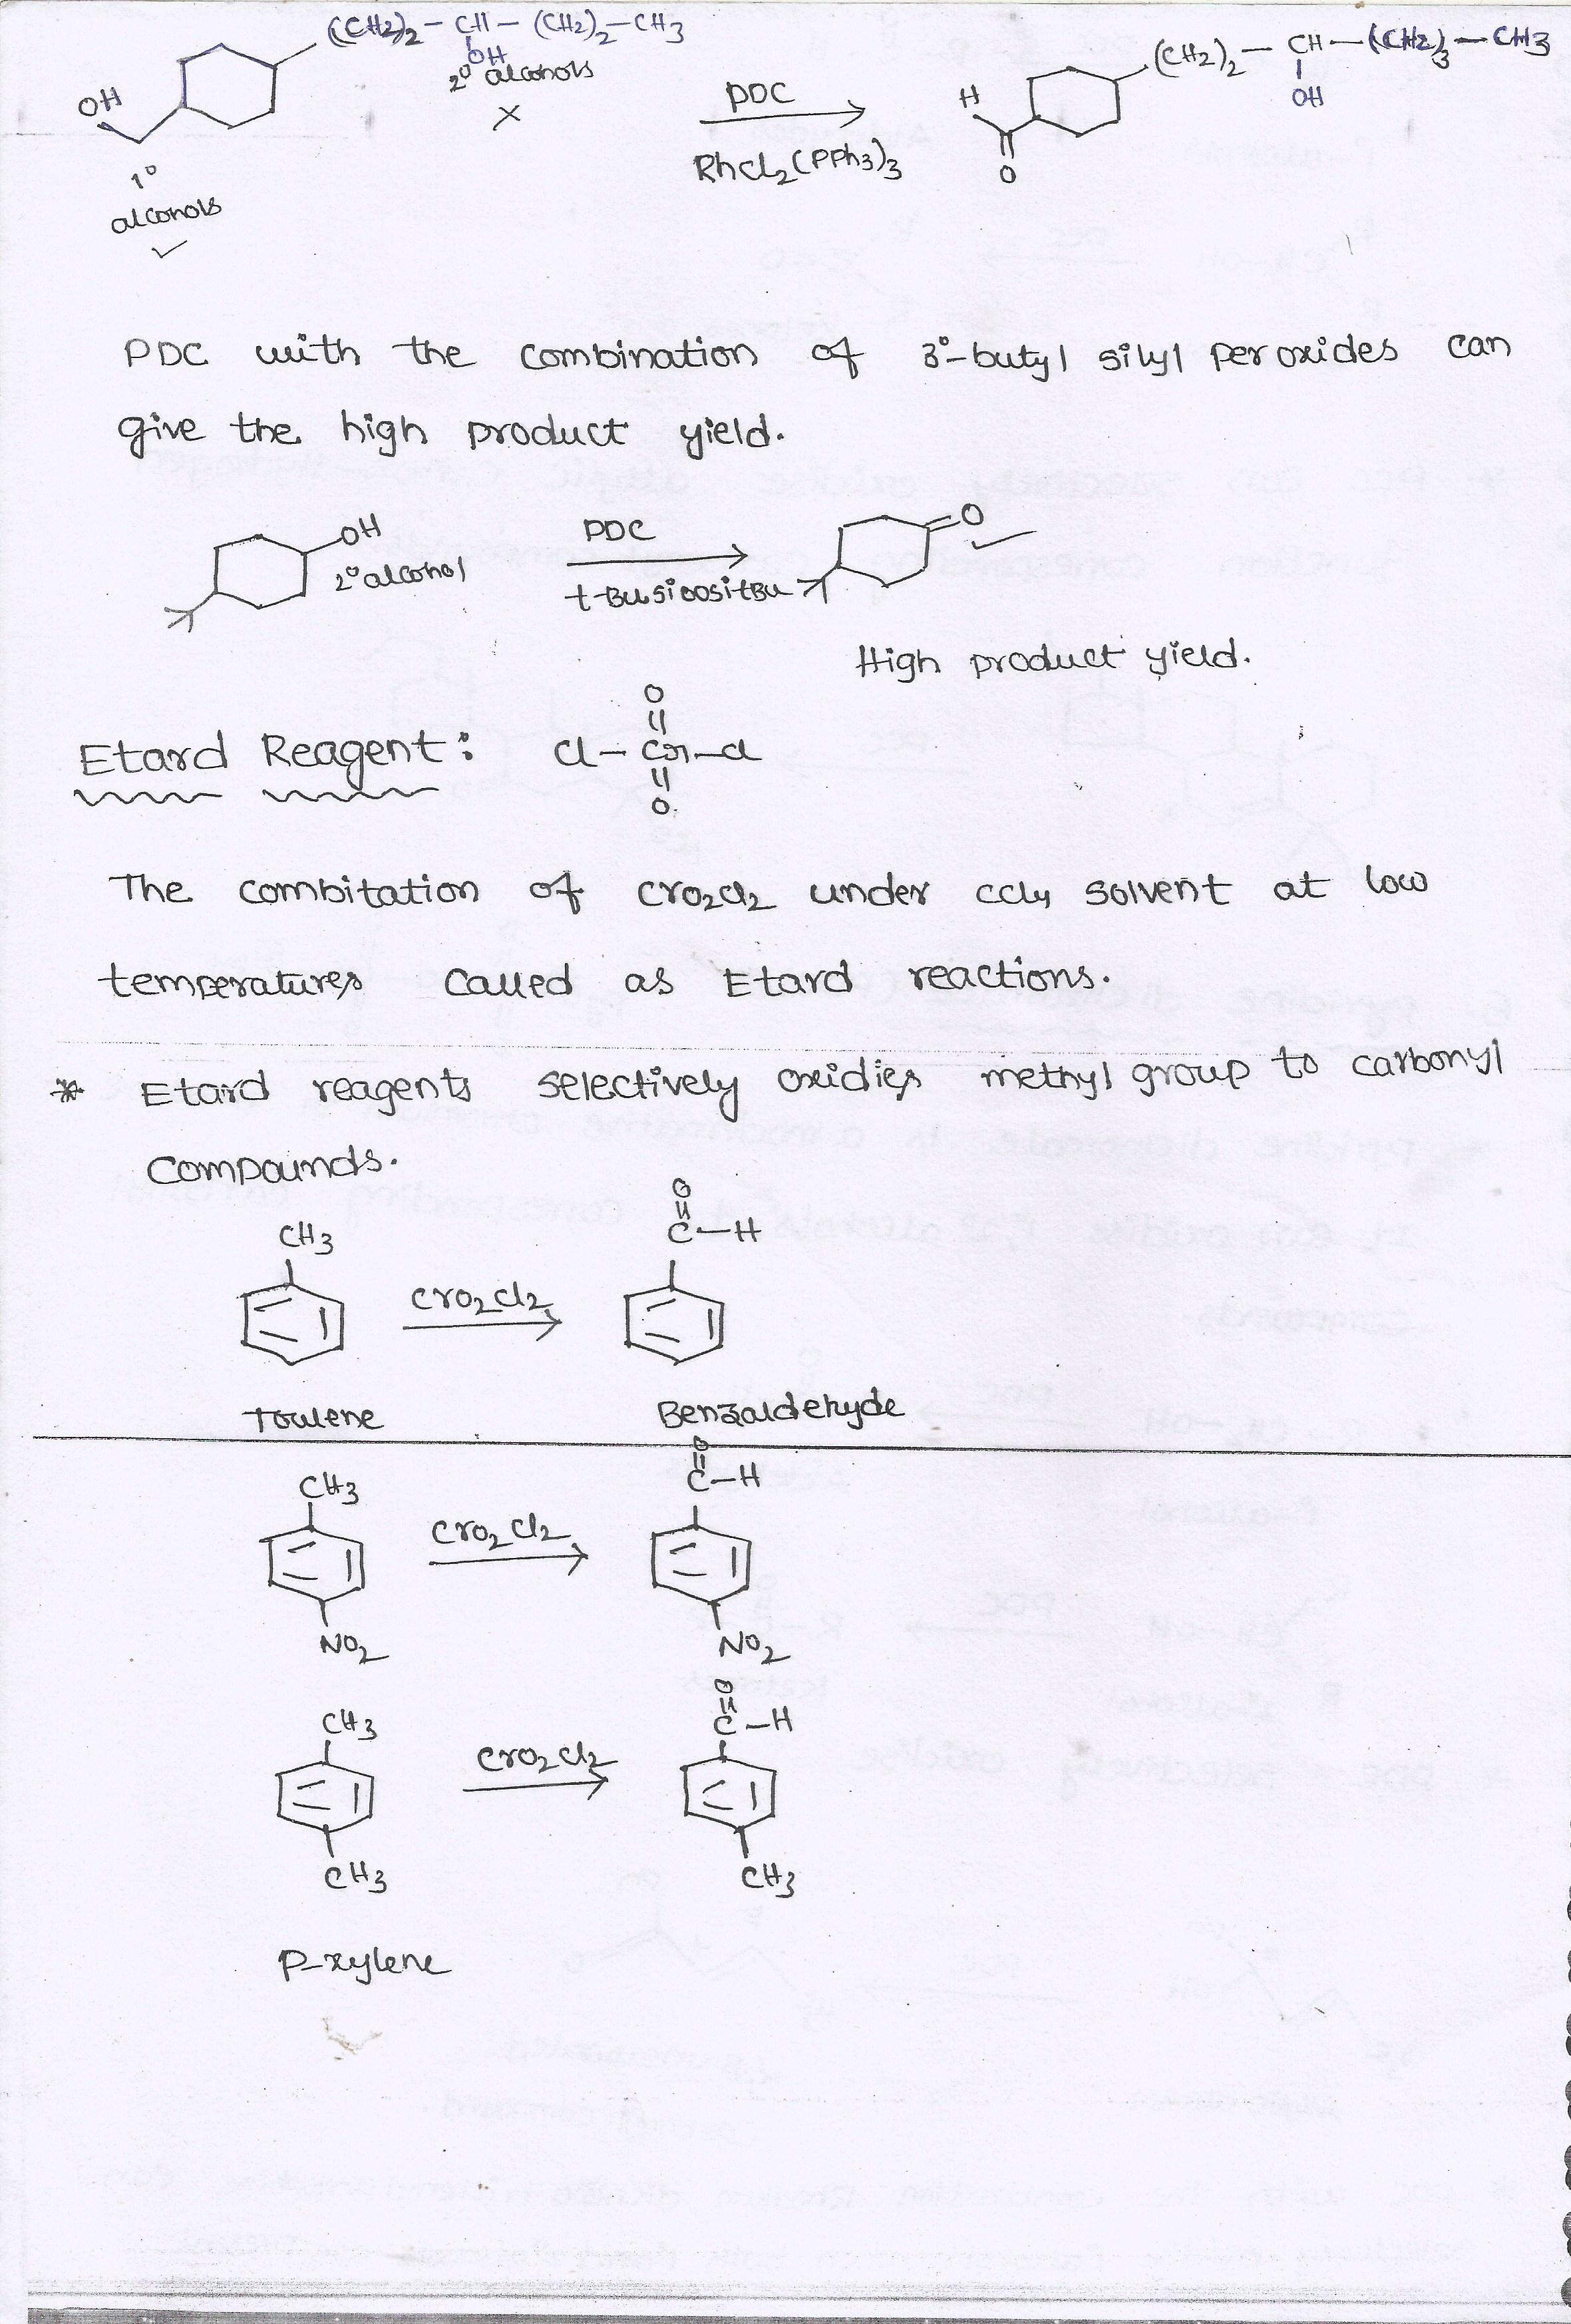 (CH2)2 - CH - (CH2)2 - CH3
OH
2° alcohols
×
OH
1°
alcohols
PDC
RhCl2(PPh3)3
(CH2)2 - CH - (CH2)3 - CH3
OH
H
O
PDC with the combination of 3°-butyl silyl peroxides can
give the high product yield.
OH
2° alcohol
PDC
t-BuSiOOSitBu
O
High product yield.
Etard Reagent:
O
Cl - Cr - Cl
O
The combitation of CrO2Cl2 under CCl4 solvent at low
temperatures called as Etard reactions.
* Etard reagents selectively oxidies methyl group to carbonyl
compounds.
CH3
CrO2Cl2
O
C-H
Toulene
Benzaldehyde
CH3
CrO2Cl2
O
C-H
NO2
NO2
CH3
CrO2Cl2
O
C-H
CH3
CH3
P-xylene